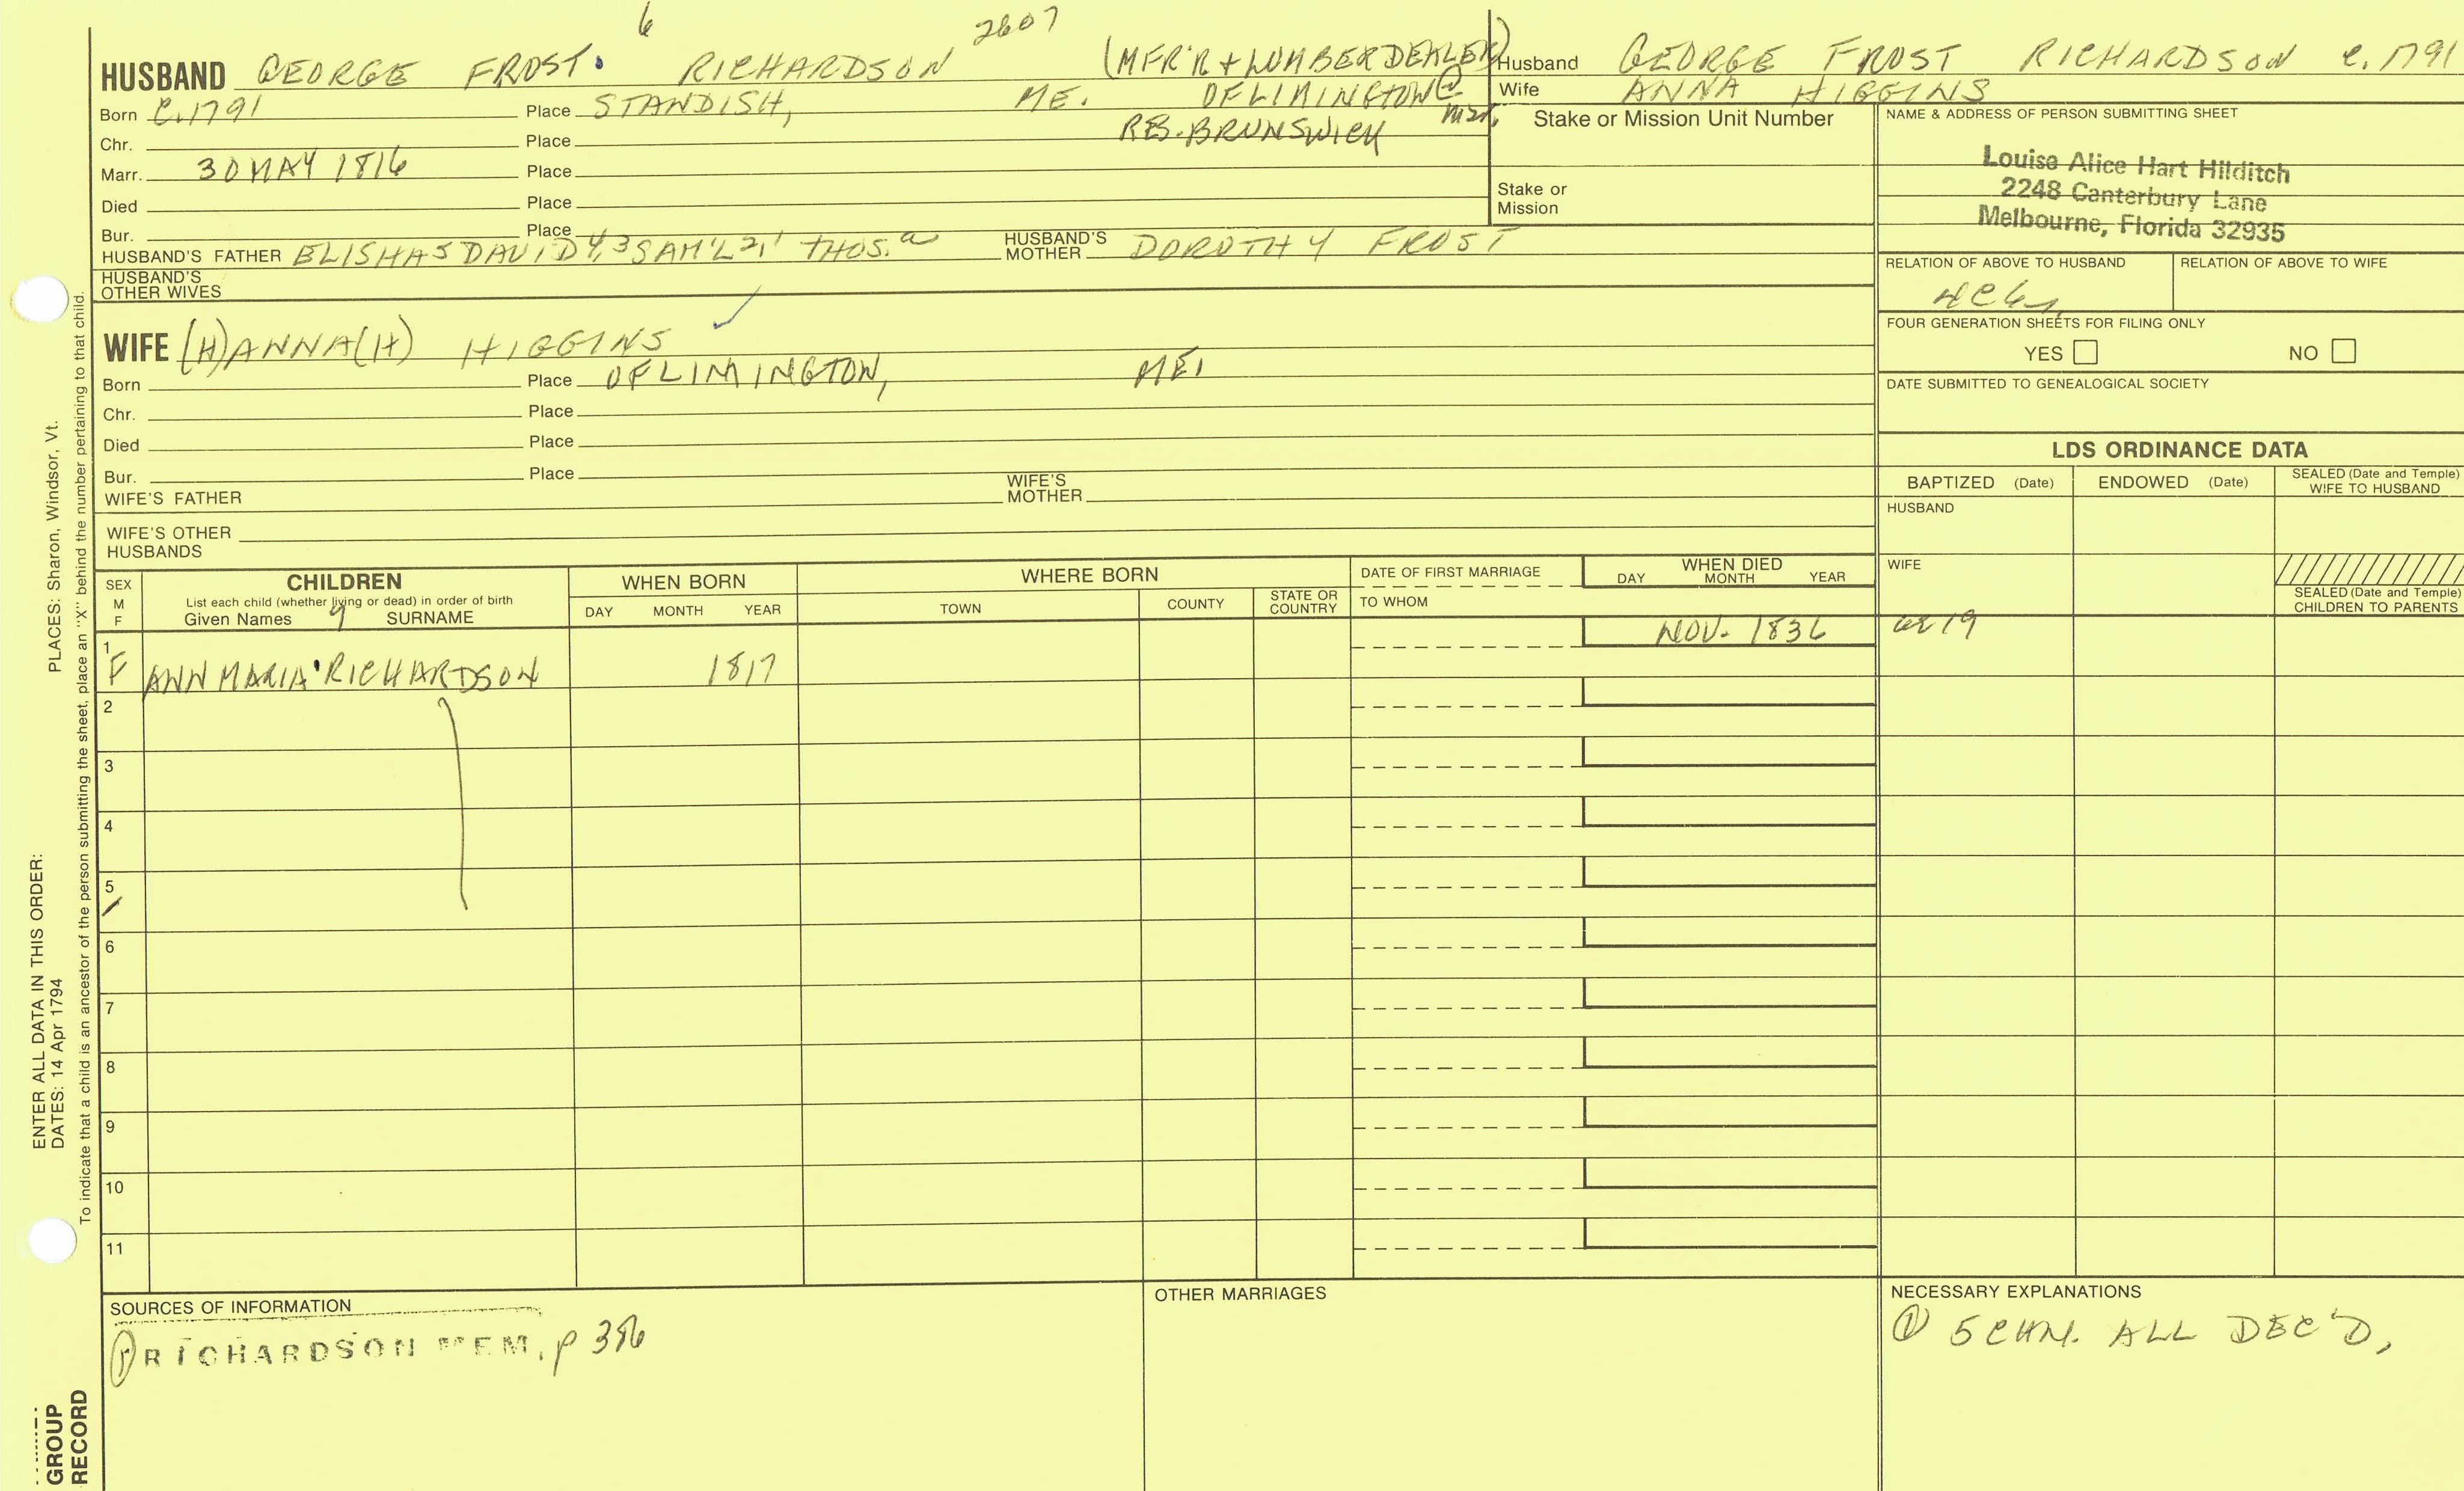 6
2607
HUSBAND GEORGE FROST. RICHARDSON (MFR'R + LUMBER DEALER)
Born C.1791 Place STANDISH, ME. OF LIMINGTON @
mar.
Chr. Place RES. BRUNSWICK
Marr. 30 MAY 1816 Place
Died Place
Bur. Place
HUSBAND'S FATHER ELISHA 5 DAVID 4, 3 SAM'L 2, 1 THOS. a HUSBAND'S MOTHER DOROTHY FROST
HUSBAND'S OTHER WIVES
WIFE (H)ANNA(H) HIGGINS ✓
Born Place OF LIMINGTON, ME.
Chr. Place
Died Place
Bur. Place
WIFE'S FATHER WIFE'S MOTHER
WIFE'S OTHER HUSBANDS
Husband GEORGE FROST RICHARDSON C.1791
Wife ANNA HIGGINS
Stake or Mission Unit Number
Stake or
Mission
NAME & ADDRESS OF PERSON SUBMITTING SHEET
Louise Alice Hart Hilditch
2248 Canterbury Lane
Melbourne, Florida 32935
RELATION OF ABOVE TO HUSBAND RELATION OF ABOVE TO WIFE
FOUR GENERATION SHEETS FOR FILING ONLY
YES NO
DATE SUBMITTED TO GENEALOGICAL SOCIETY
LDS ORDINANCE DATA
BAPTIZED (Date) ENDOWED (Date) SEALED (Date and Temple) WIFE TO HUSBAND
HUSBAND
WIFE
SEALED (Date and Temple) CHILDREN TO PARENTS
SEX M F
CHILDREN
List each child (whether living or dead) in order of birth
Given Names 9 SURNAME
WHEN BORN
DAY MONTH YEAR
WHERE BORN
TOWN COUNTY STATE OR COUNTRY
DATE OF FIRST MARRIAGE
TO WHOM
WHEN DIED
DAY MONTH YEAR
1 F ANN MARIA RICHARDSON 1817 NOV. 1836 ae 19
2
3
4
5
6
7
8
9
10
11
SOURCES OF INFORMATION
(1) RICHARDSON MEM, p 386
OTHER MARRIAGES
NECESSARY EXPLANATIONS
① 5 CHN. ALL DEC'D,
PLACES: Sharon, Windsor, Vt.
ENTER ALL DATA IN THIS ORDER:
DATES: 14 Apr 1794
To indicate that a child is an ancestor of the person submitting the sheet, place an "X" behind the number pertaining to that child.
GROUP
RECORD